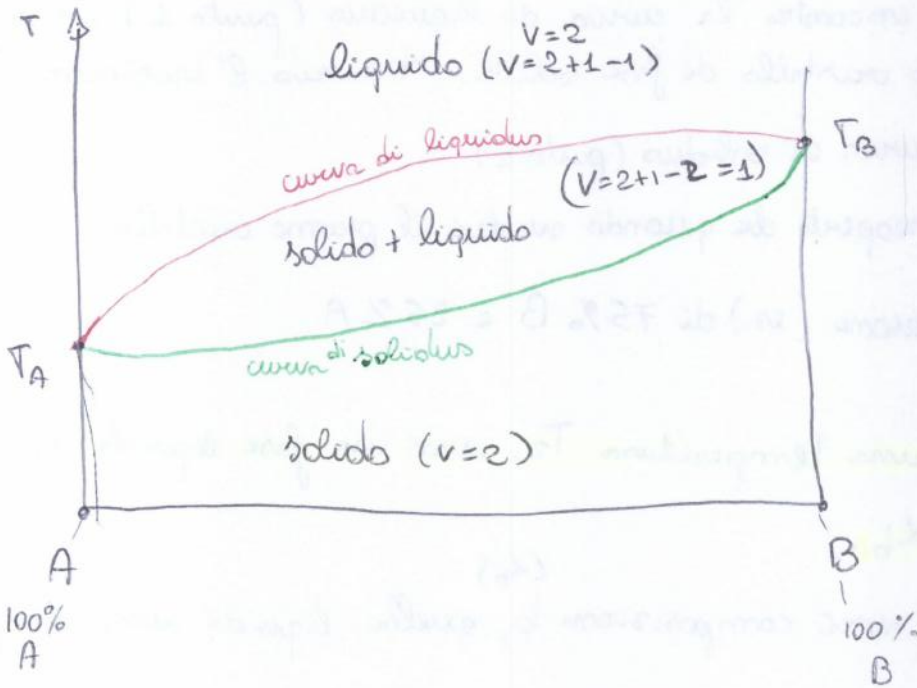 T
V=2
liquido (V=2+1-1)
curva di liquidus
T_B
(V=2+1-2=1)
solido + liquido
T_A
curva di solidus
solido (V=2)
A
B
100%
A
100%
B